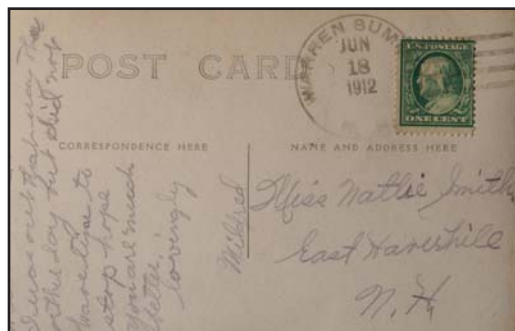 POST CARD
WARREN SUM
JUN
18
1912
U.S. POSTAGE
ONE CENT
CORRESPONDENCE HERE
NAME AND ADDRESS HERE
I was out that way the
other day but did not
have time to
stop hope
you are much
better.
lovingly
Mildred
Miss Nattie Smith,
East Haverhill
N.H.